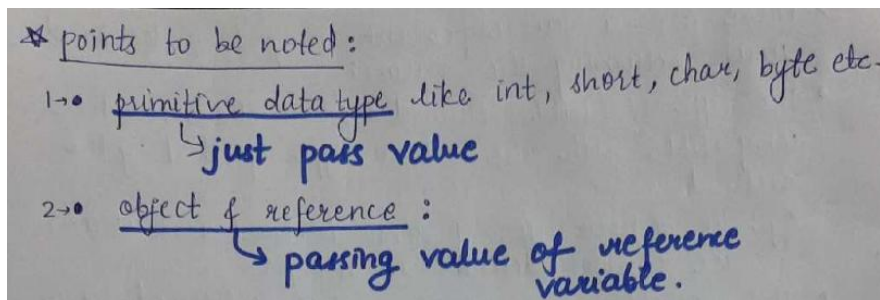 * points to be noted:
1→• primitive data type like int, short, char, byte etc.
↳just pass value
2→• object & reference :
↳ passing value of reference
variable.